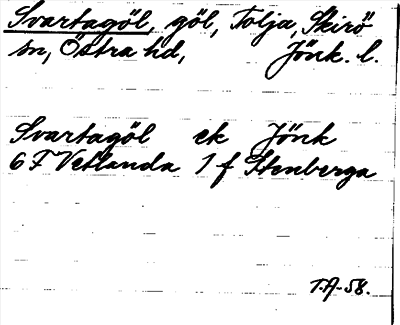 Svartagöl, göl, Tolja, Skirö
sn, Östra hd, Jönk. l.
Svartagöl ek Jönk
6 F Vetlanda 1 f Stenberga
T.A-58.